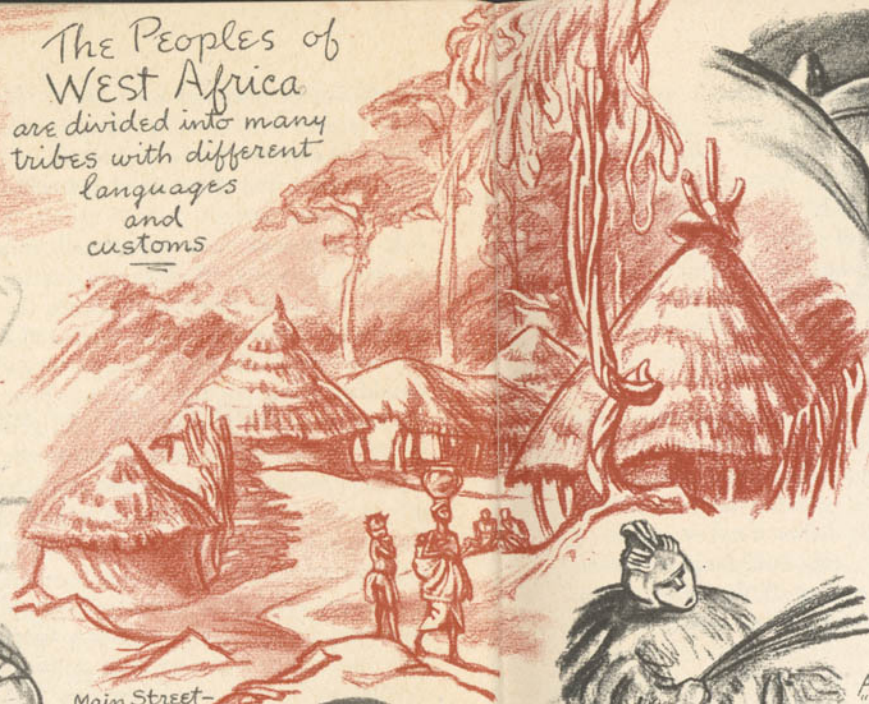 The Peoples of
West Africa
are divided into many
tribes with different
languages
and
customs
Main Street-